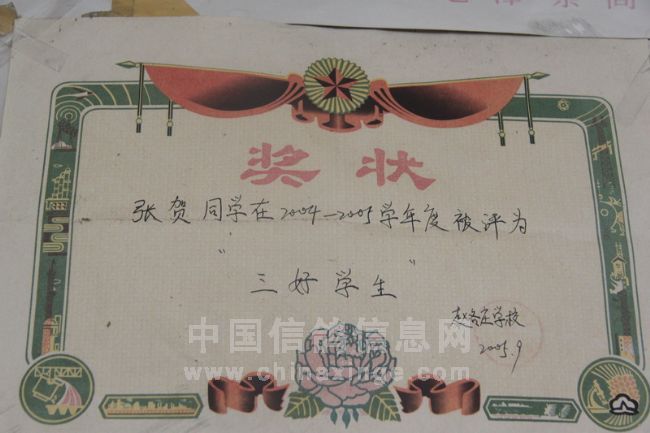 奖状
张贺同学在2004—2005学年度被评为
“三好学生”
赵各庄学校
2005.9
中国信鸽信息网
www.chinaxinge.com